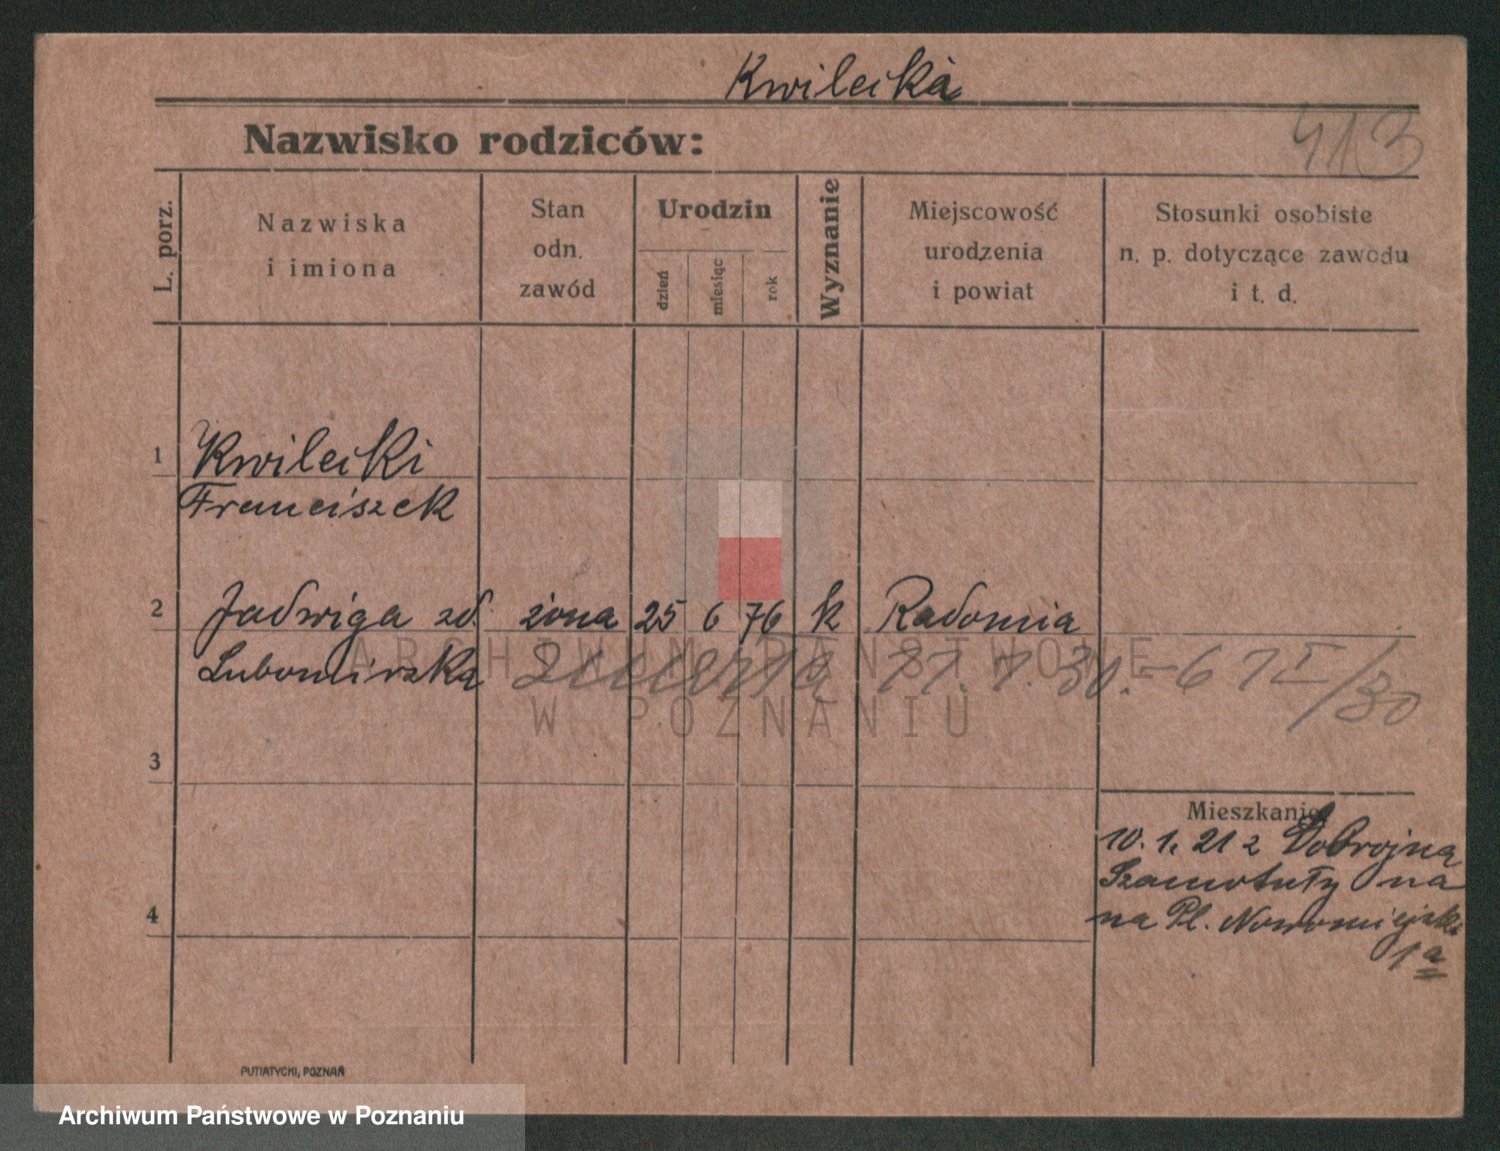 Kwilecka
Nazwisko rodziców:
413
L. porz.
Nazwiska
i imiona
Stan
odn.
zawód
Urodzin
dzień
miesiąc
rok
Wyznanie
Miejscowość
urodzenia
i powiat
Stosunki osobiste
n. p. dotyczące zawodu
i t. d.
1 Kwilecki
Franciszek
2 Jadwiga zd. żona 25 6 76 k Radomia
Lubomirska zmarła 11.1.30.-67 I/30
ARCHIWUM PAŃSTWOWE
W POZNANIU
3
Mieszkanie
10. 1. 21 z Dobrojna
Szamotuły na
4 na Pl. Nowomiejski
1a
PUTIATYCKI, POZNAŃ
Archiwum Państwowe w Poznaniu